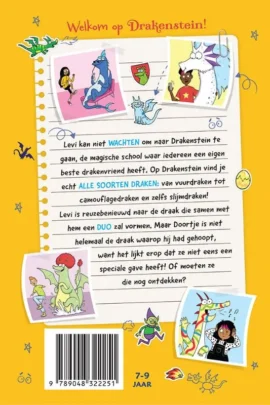 Welkom op Drakenstein!
Levi kan niet WACHTEN om naar Drakenstein te
gaan, de magische school waar iedereen een eigen
beste drakenvriend heeft. Op Drakenstein vind je
echt ALLE SOORTEN DRAKEN: van vuurdraken tot
camouflagedraken en zelfs slijmdraken!
Levi is reuzebenieuwd naar de draak die samen met
hem een DUO zal vormen. Maar Doortje is niet
helemaal de draak waarop hij had gehoopt,
want het lijkt erop dat ze niet eens een
speciale gave heeft! Of moeten ze
die nog ontdekken?
9 789048 322251
7-9
JAAR